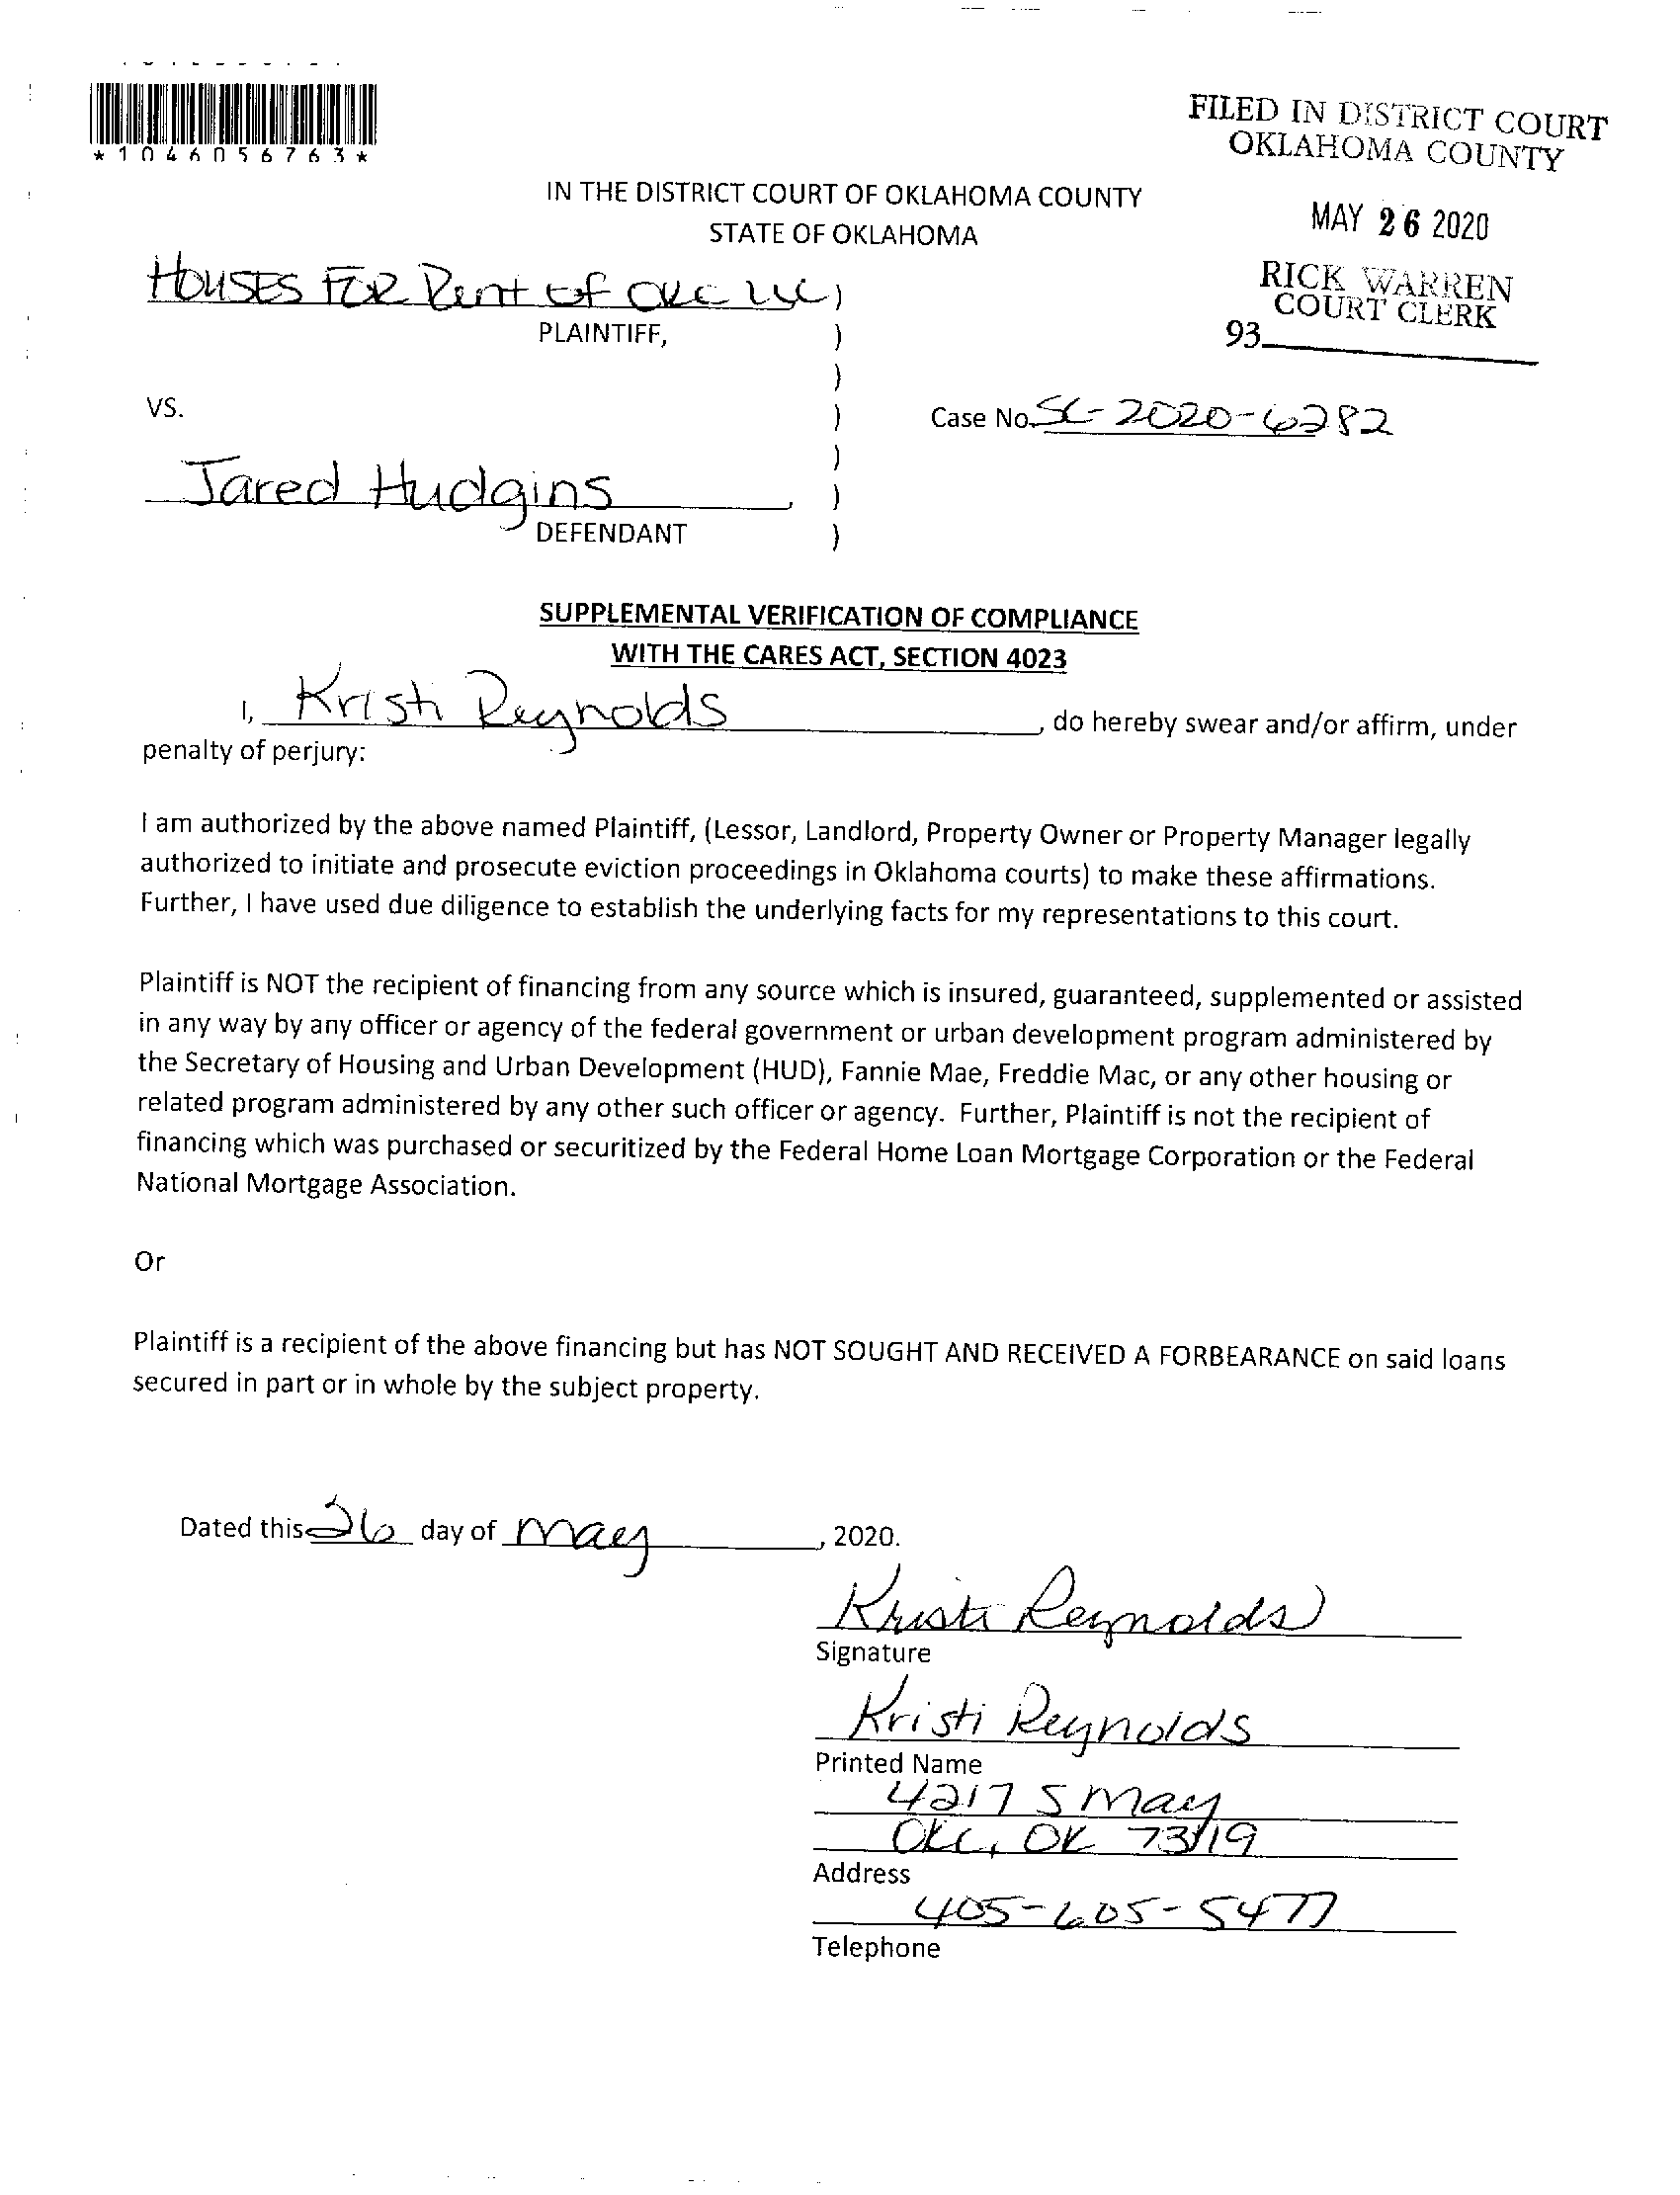 *1046056763*
FILED IN DISTRICT COURT
OKLAHOMA COUNTY
MAY 26 2020
RICK WARREN
COURT CLERK
93
IN THE DISTRICT COURT OF OKLAHOMA COUNTY
STATE OF OKLAHOMA
HOUSES FOR Rent of OKC LLC )
PLAINTIFF, )
)
VS. ) Case No. SC-2020-6282
)
Jared Hudgins, )
DEFENDANT )
SUPPLEMENTAL VERIFICATION OF COMPLIANCE
WITH THE CARES ACT, SECTION 4023
I, Kristi Reynolds, do hereby swear and/or affirm, under
penalty of perjury:
I am authorized by the above named Plaintiff, (Lessor, Landlord, Property Owner or Property Manager legally
authorized to initiate and prosecute eviction proceedings in Oklahoma courts) to make these affirmations.
Further, I have used due diligence to establish the underlying facts for my representations to this court.
Plaintiff is NOT the recipient of financing from any source which is insured, guaranteed, supplemented or assisted
in any way by any officer or agency of the federal government or urban development program administered by
the Secretary of Housing and Urban Development (HUD), Fannie Mae, Freddie Mac, or any other housing or
related program administered by any other such officer or agency. Further, Plaintiff is not the recipient of
financing which was purchased or securitized by the Federal Home Loan Mortgage Corporation or the Federal
National Mortgage Association.
Or
Plaintiff is a recipient of the above financing but has NOT SOUGHT AND RECEIVED A FORBEARANCE on said loans
secured in part or in whole by the subject property.
Dated this 26 day of May, 2020.
Kristi Reynolds
Signature
Kristi Reynolds
Printed Name
4217 S May
OKC, OK 73119
Address
405-605-5477
Telephone